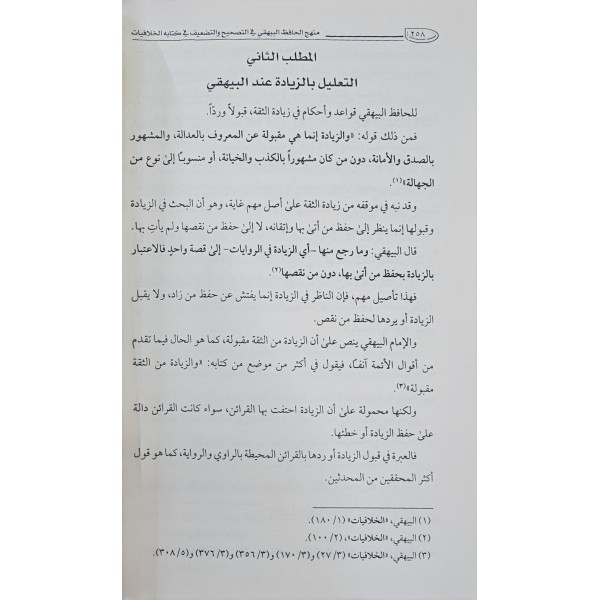 ٢٥٨ منهج الحافظ البيهقي في التصحيح والتضعيف في كتابه الخلافيات
المطلب الثاني
التعليل بالزيادة عند البيهقي
للحافظ البيهقي قواعد وأحكام في زيادة الثقة، قبولاً وردّاً.
فمن ذلك قوله: «والزيادة إنما هي مقبولة عن المعروف بالعدالة، والمشهور
بالصدق والأمانة، دون من كان مشهوراً بالكذب والخيانة، أو منسوبًا إلىٰ نوع من
الجهالة»(١).
وقد نبه في موقفه من زيادة الثقة علىٰ أصل مهم غاية، وهو أن البحث في الزيادة
وقبولها إنما ينظر إلىٰ حفظ من أتىٰ بها وإتقانه، لا إلىٰ حفظ من نقصها ولم يأتِ بها.
قال البيهقي: وما رجع منها -أي الزيادة في الروايات- إلىٰ قصة واحدٍ فالاعتبار
بالزيادة بحفظ من أتىٰ بها، دون من نقصها(٢).
فهذا تأصيل مهم، فإن الناظر في الزيادة إنما يفتش عن حفظ من زاد، ولا يقبل
الزيادة أو يردها لحفظ من نقص.
والإمام البيهقي ينص علىٰ أن الزيادة من الثقة مقبولة، كما هو الحال فيما تقدم
من أقوال الأئمة آنفًا، فيقول في أكثر من موضع من كتابه: «والزيادة من الثقة
مقبولة»(٣).
ولكنها محمولة علىٰ أن الزيادة احتفت بها القرائن، سواء كانت القرائن دالة
علىٰ حفظ الزيادة أو خطئها.
فالعبرة في قبول الزيادة أو ردها بالقرائن المحيطة بالراوي والرواية، كما هو قول
أكثر المحققين من المحدثين.
(١) البيهقي، «الخلافيات» (١/ ١٨٠).
(٢) البيهقي، «الخلافيات»، (٢/ ١٠٠).
(٣) البيهقي، «الخلافيات» (٣/ ٢٧) و(٣/ ١٧٠) و(٣/ ٣٥٦) و(٣/ ٣٧٦) و(٥/ ٣٠٨).